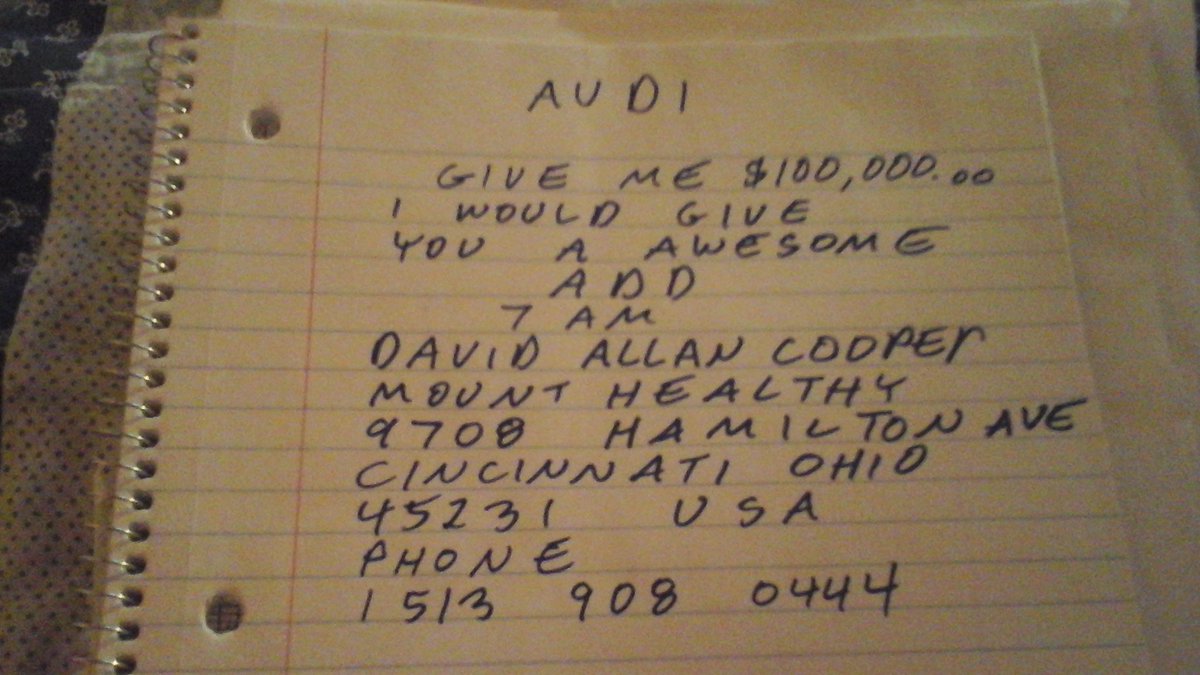 AUDI
GIVE ME $100,000.00
I WOULD GIVE
YOU A AWESOME
ADD
7 AM
DAVID ALLAN COOPER
MOUNT HEALTHY
9708 HAMILTON AVE
CINCINNATI OHIO
45231 USA
PHONE
1513 908 0444